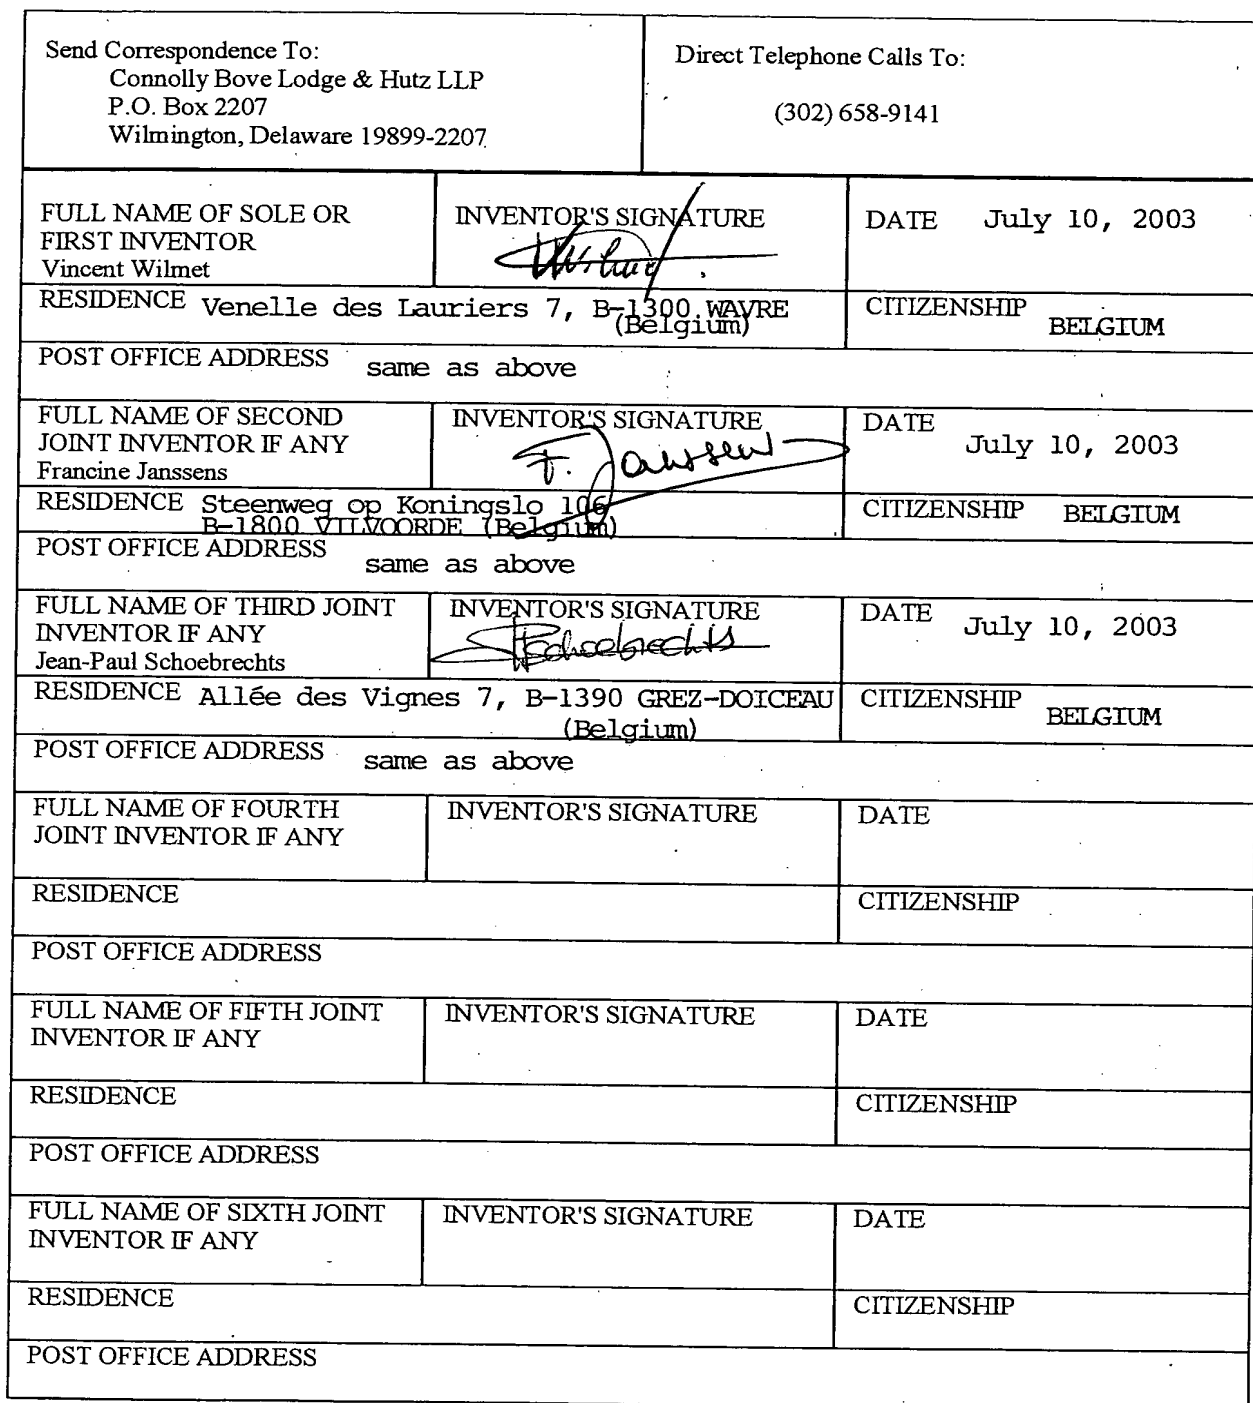 Send Correspondence To:
Connolly Bove Lodge & Hutz LLP
P.O. Box 2207
Wilmington, Delaware 19899-2207
Direct Telephone Calls To:
(302) 658-9141
FULL NAME OF SOLE OR
FIRST INVENTOR
Vincent Wilmet
INVENTOR'S SIGNATURE
Wilmet
DATE July 10, 2003
RESIDENCE Venelle des Lauriers 7, B-1300 WAVRE
(Belgium)
CITIZENSHIP
BELGIUM
POST OFFICE ADDRESS same as above
FULL NAME OF SECOND
JOINT INVENTOR IF ANY
Francine Janssens
INVENTOR'S SIGNATURE
F. Janssens
DATE
July 10, 2003
RESIDENCE Steenweg op Koningslo 106
B-1800 VILVOORDE (Belgium)
CITIZENSHIP BELGIUM
POST OFFICE ADDRESS
same as above
FULL NAME OF THIRD JOINT
INVENTOR IF ANY
Jean-Paul Schoebrechts
INVENTOR'S SIGNATURE
JPSchoebrechts
DATE
July 10, 2003
RESIDENCE Allée des Vignes 7, B-1390 GREZ-DOICEAU
(Belgium)
CITIZENSHIP
BELGIUM
POST OFFICE ADDRESS same as above
FULL NAME OF FOURTH
JOINT INVENTOR IF ANY
INVENTOR'S SIGNATURE
DATE
RESIDENCE
CITIZENSHIP
POST OFFICE ADDRESS
FULL NAME OF FIFTH JOINT
INVENTOR IF ANY
INVENTOR'S SIGNATURE
DATE
RESIDENCE
CITIZENSHIP
POST OFFICE ADDRESS
FULL NAME OF SIXTH JOINT
INVENTOR IF ANY
INVENTOR'S SIGNATURE
DATE
RESIDENCE
CITIZENSHIP
POST OFFICE ADDRESS